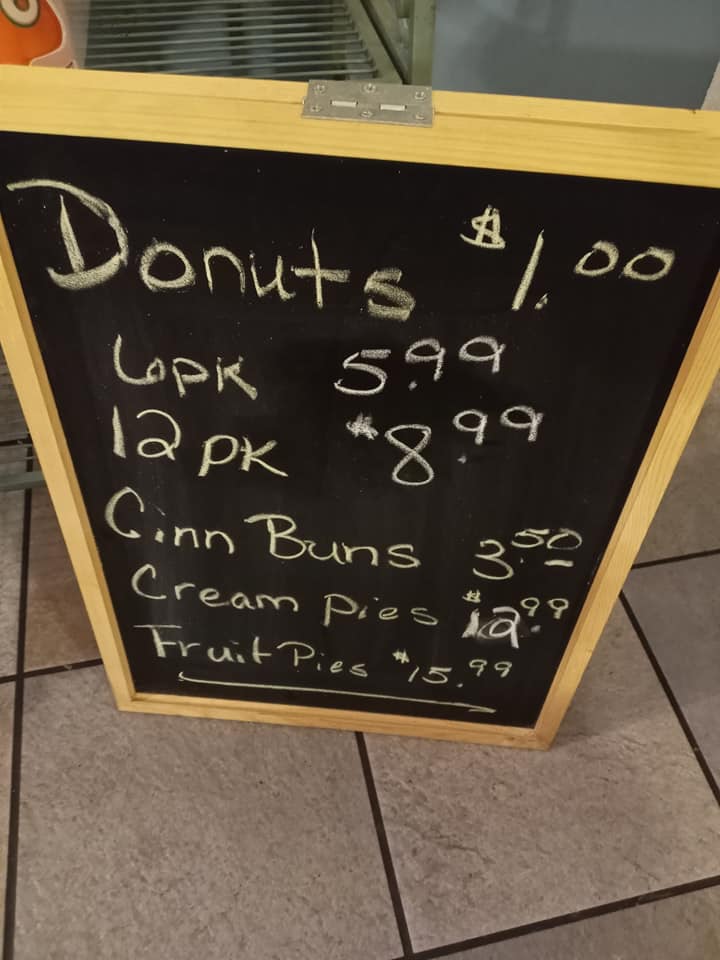 Donuts $1.00
6pk 5.99
12 pk $8.99
Cinn Buns 3.50
Cream Pies $12.99
Fruit Pies $15.99